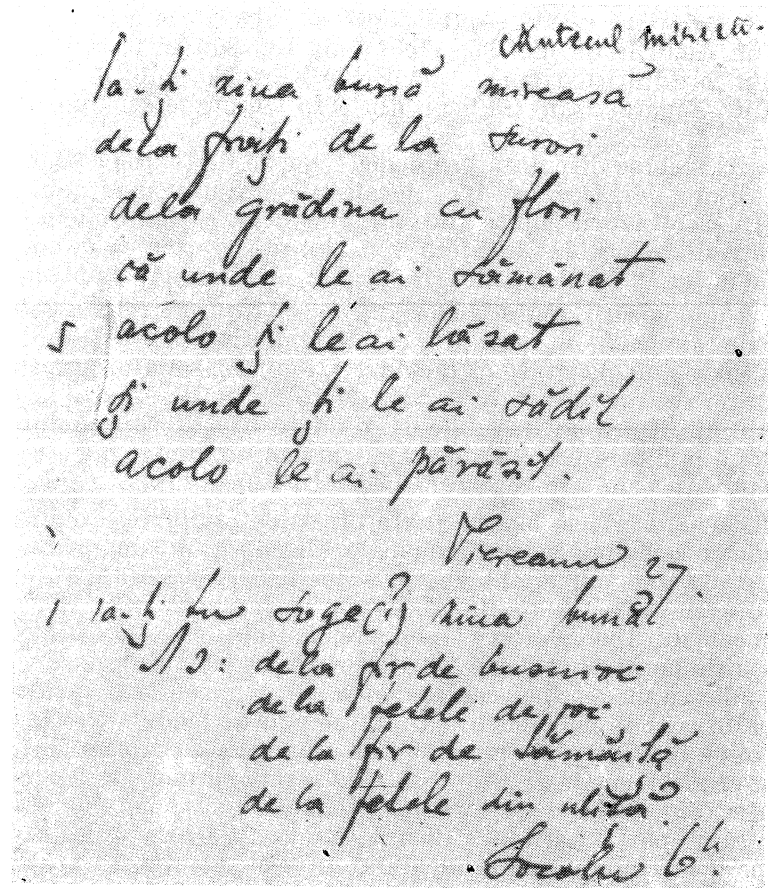 Cântecul miresii.
Ia-ți ziua bună mireasă
dela frați de la surori
dela grădina cu flori
că unde le ai sămănat
5 acolo ți le ai lăsat
și unde ți le ai sădit
acolo le ai părăsit.
27
1 ia-ți tu soge(?) ziua bună
N 2: dela fir de busuioc
dela fetele de joc
de la fir de tămâiță
de la fetele din uliță
Socolu 6